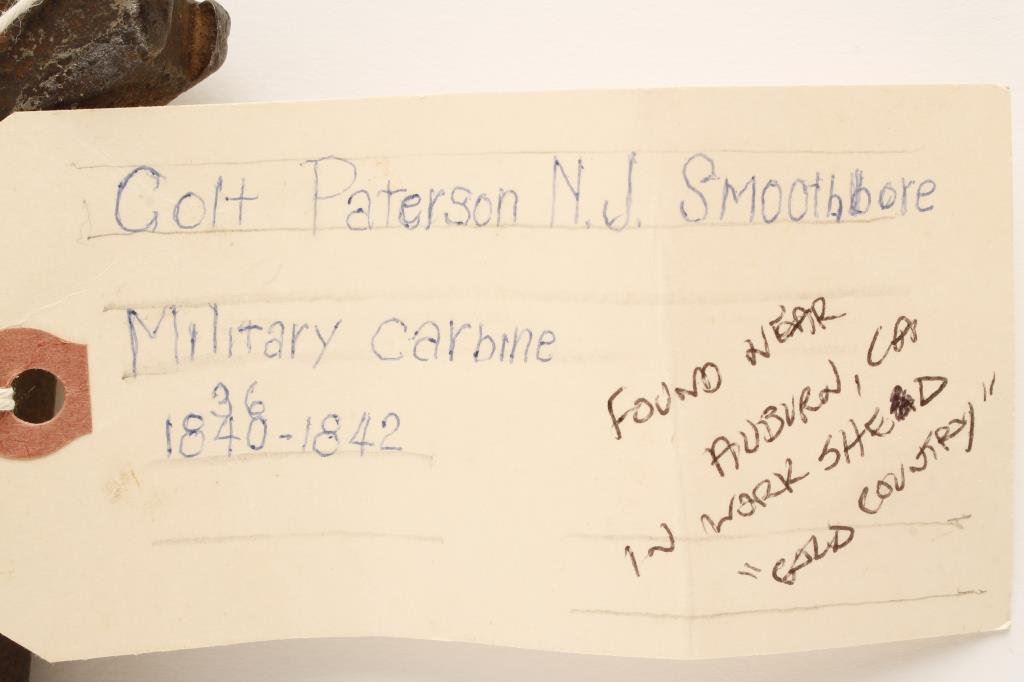 Colt Paterson N.J. Smoothbore
Military Carbine
36
1840-1842
FOUND NEAR
AUBURN, CA
IN WORK SHED
"GOLD COUNTRY"